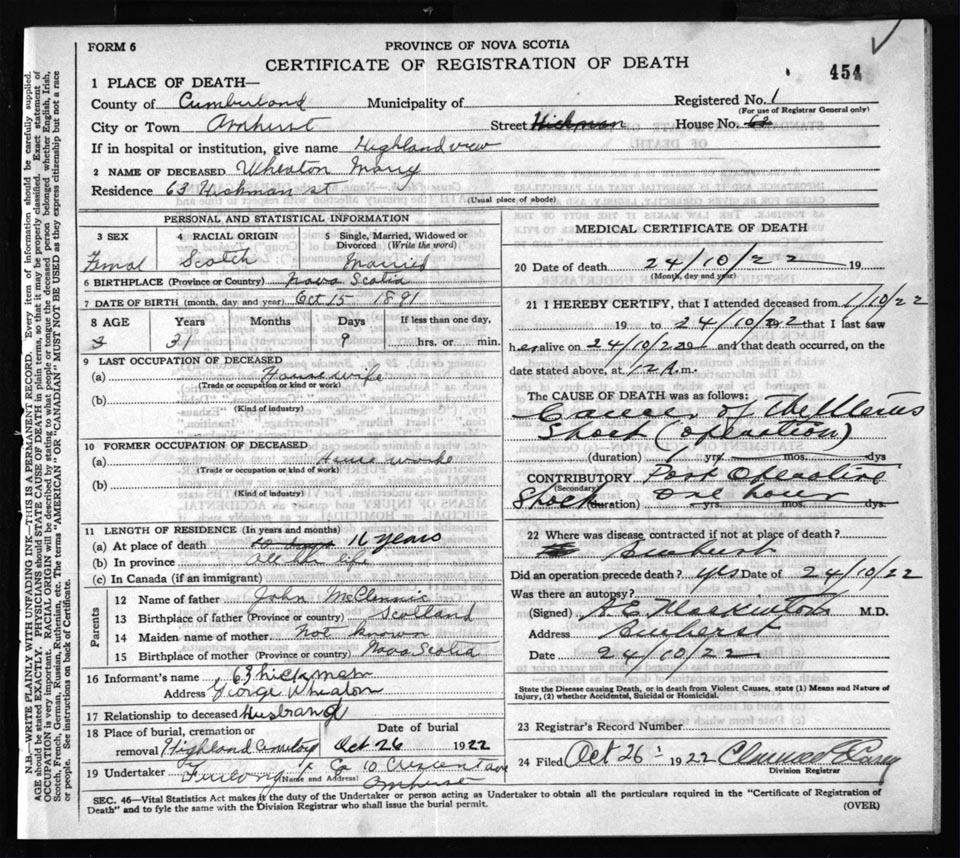 FORM 6
PROVINCE OF NOVA SCOTIA
CERTIFICATE OF REGISTRATION OF DEATH
454
1 PLACE OF DEATH—
County of Cumberland Municipality of Registered No. 1
(For use of Registrar General only)
City or Town Amherst Street Hickman House No. 63
If in hospital or institution, give name Highland view
2 NAME OF DECEASED Wheaton Mary
Residence 63 Hickman st
(Usual place of abode)
PERSONAL AND STATISTICAL INFORMATION
3 SEX 4 RACIAL ORIGIN 5 Single, Married, Widowed or Divorced (Write the word)
Femal Scotch Married
6 BIRTHPLACE (Province or Country) Nova Scotia
7 DATE OF BIRTH (month, day and year) Oct 15 1891
8 AGE Years Months Days If less than one day,
31 9 hrs. or min.
9 LAST OCCUPATION OF DECEASED
(a) House wife
(Trade or occupation or kind or work)
(b)
(Kind of industry)
10 FORMER OCCUPATION OF DECEASED
(a) House worke
(Trade or occupation or kind of work)
(b)
(Kind of industry)
11 LENGTH OF RESIDENCE (In years and months)
(a) At place of death 16 years
(b) In province all her life
(c) In Canada (if an immigrant)
Parents
12 Name of father John McClennic
13 Birthplace of father (Province or country) Scotland
14 Maiden name of mother Not known
15 Birthplace of mother (Province or country) Nova Scotia
16 Informant's name 63 hickman
Address George Wheaton
17 Relationship to deceased Husband
18 Place of burial, cremation or Date of burial
removal Highland Cemetery Oct 26 1922
19 Undertaker Furlong & Co 10 Crescent ave
(Name and Address) Amherst
MEDICAL CERTIFICATE OF DEATH
20 Date of death 24/10/22 19
(Month, day and year)
21 I HEREBY CERTIFY, that I attended deceased from 1/10/22
19 to 24/10/22 that I last saw
her alive on 24/10/22 and that death occurred, on the
date stated above, at 12 A.m.
The CAUSE OF DEATH was as follows:
Cancer of the Uterus
Shock (operation)
(duration) 1 yrs. mos. dys
CONTRIBUTORY Post Operative
(Secondary)
Shock (duration) one hour yrs. mos. dys.
22 Where was disease contracted if not at place of death?
Amherst
Did an operation precede death? yes Date of 24/10/22
Was there an autopsy?
(Signed) M.D.
Address Amherst
Date 24/10/22
State the Disease causing Death, or in death from Violent Causes, state (1) Means and Nature of
Injury, (2) whether Accidental, Suicidal or Homicidal.
23 Registrar's Record Number
24 Filed Oct 26 1922
Division Registrar
SEC. 46—Vital Statistics Act makes it the duty of the Undertaker or person acting as Undertaker to obtain all the particulars required in the "Certificate of Registration of
Death" and to fyle the same with the Division Registrar who shall issue the burial permit.
(OVER)
N.B.—WRITE PLAINLY WITH UNFADING INK—THIS IS A PERMANENT RECORD. Every item of information should be carefully supplied.
AGE should be stated EXACTLY. PHYSICIANS should STATE CAUSE OF DEATH in plain terms, so that it may be properly classified. Exact statement of
OCCUPATION is very important. RACIAL ORIGIN will be described by stating to what people or tongue the deceased person belonged whether English, Irish,
Scotch, French, German, Russian, Ruthenian, etc. The terms "AMERICAN" OR "CANADIAN" MUST NOT BE USED as they express citizenship but not a race
or people. See instructions on back of Certificate.